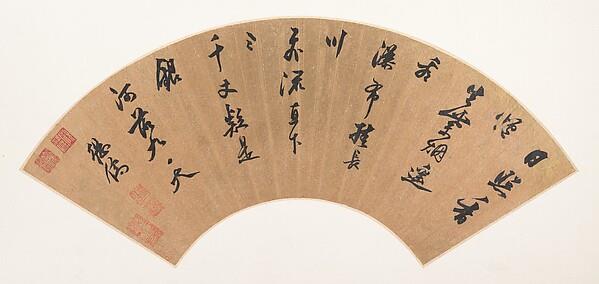 日照香
爐
生紫烟遙
看
瀑布挂長
川
飛流直下
三
千丈疑是
銀
河落九天